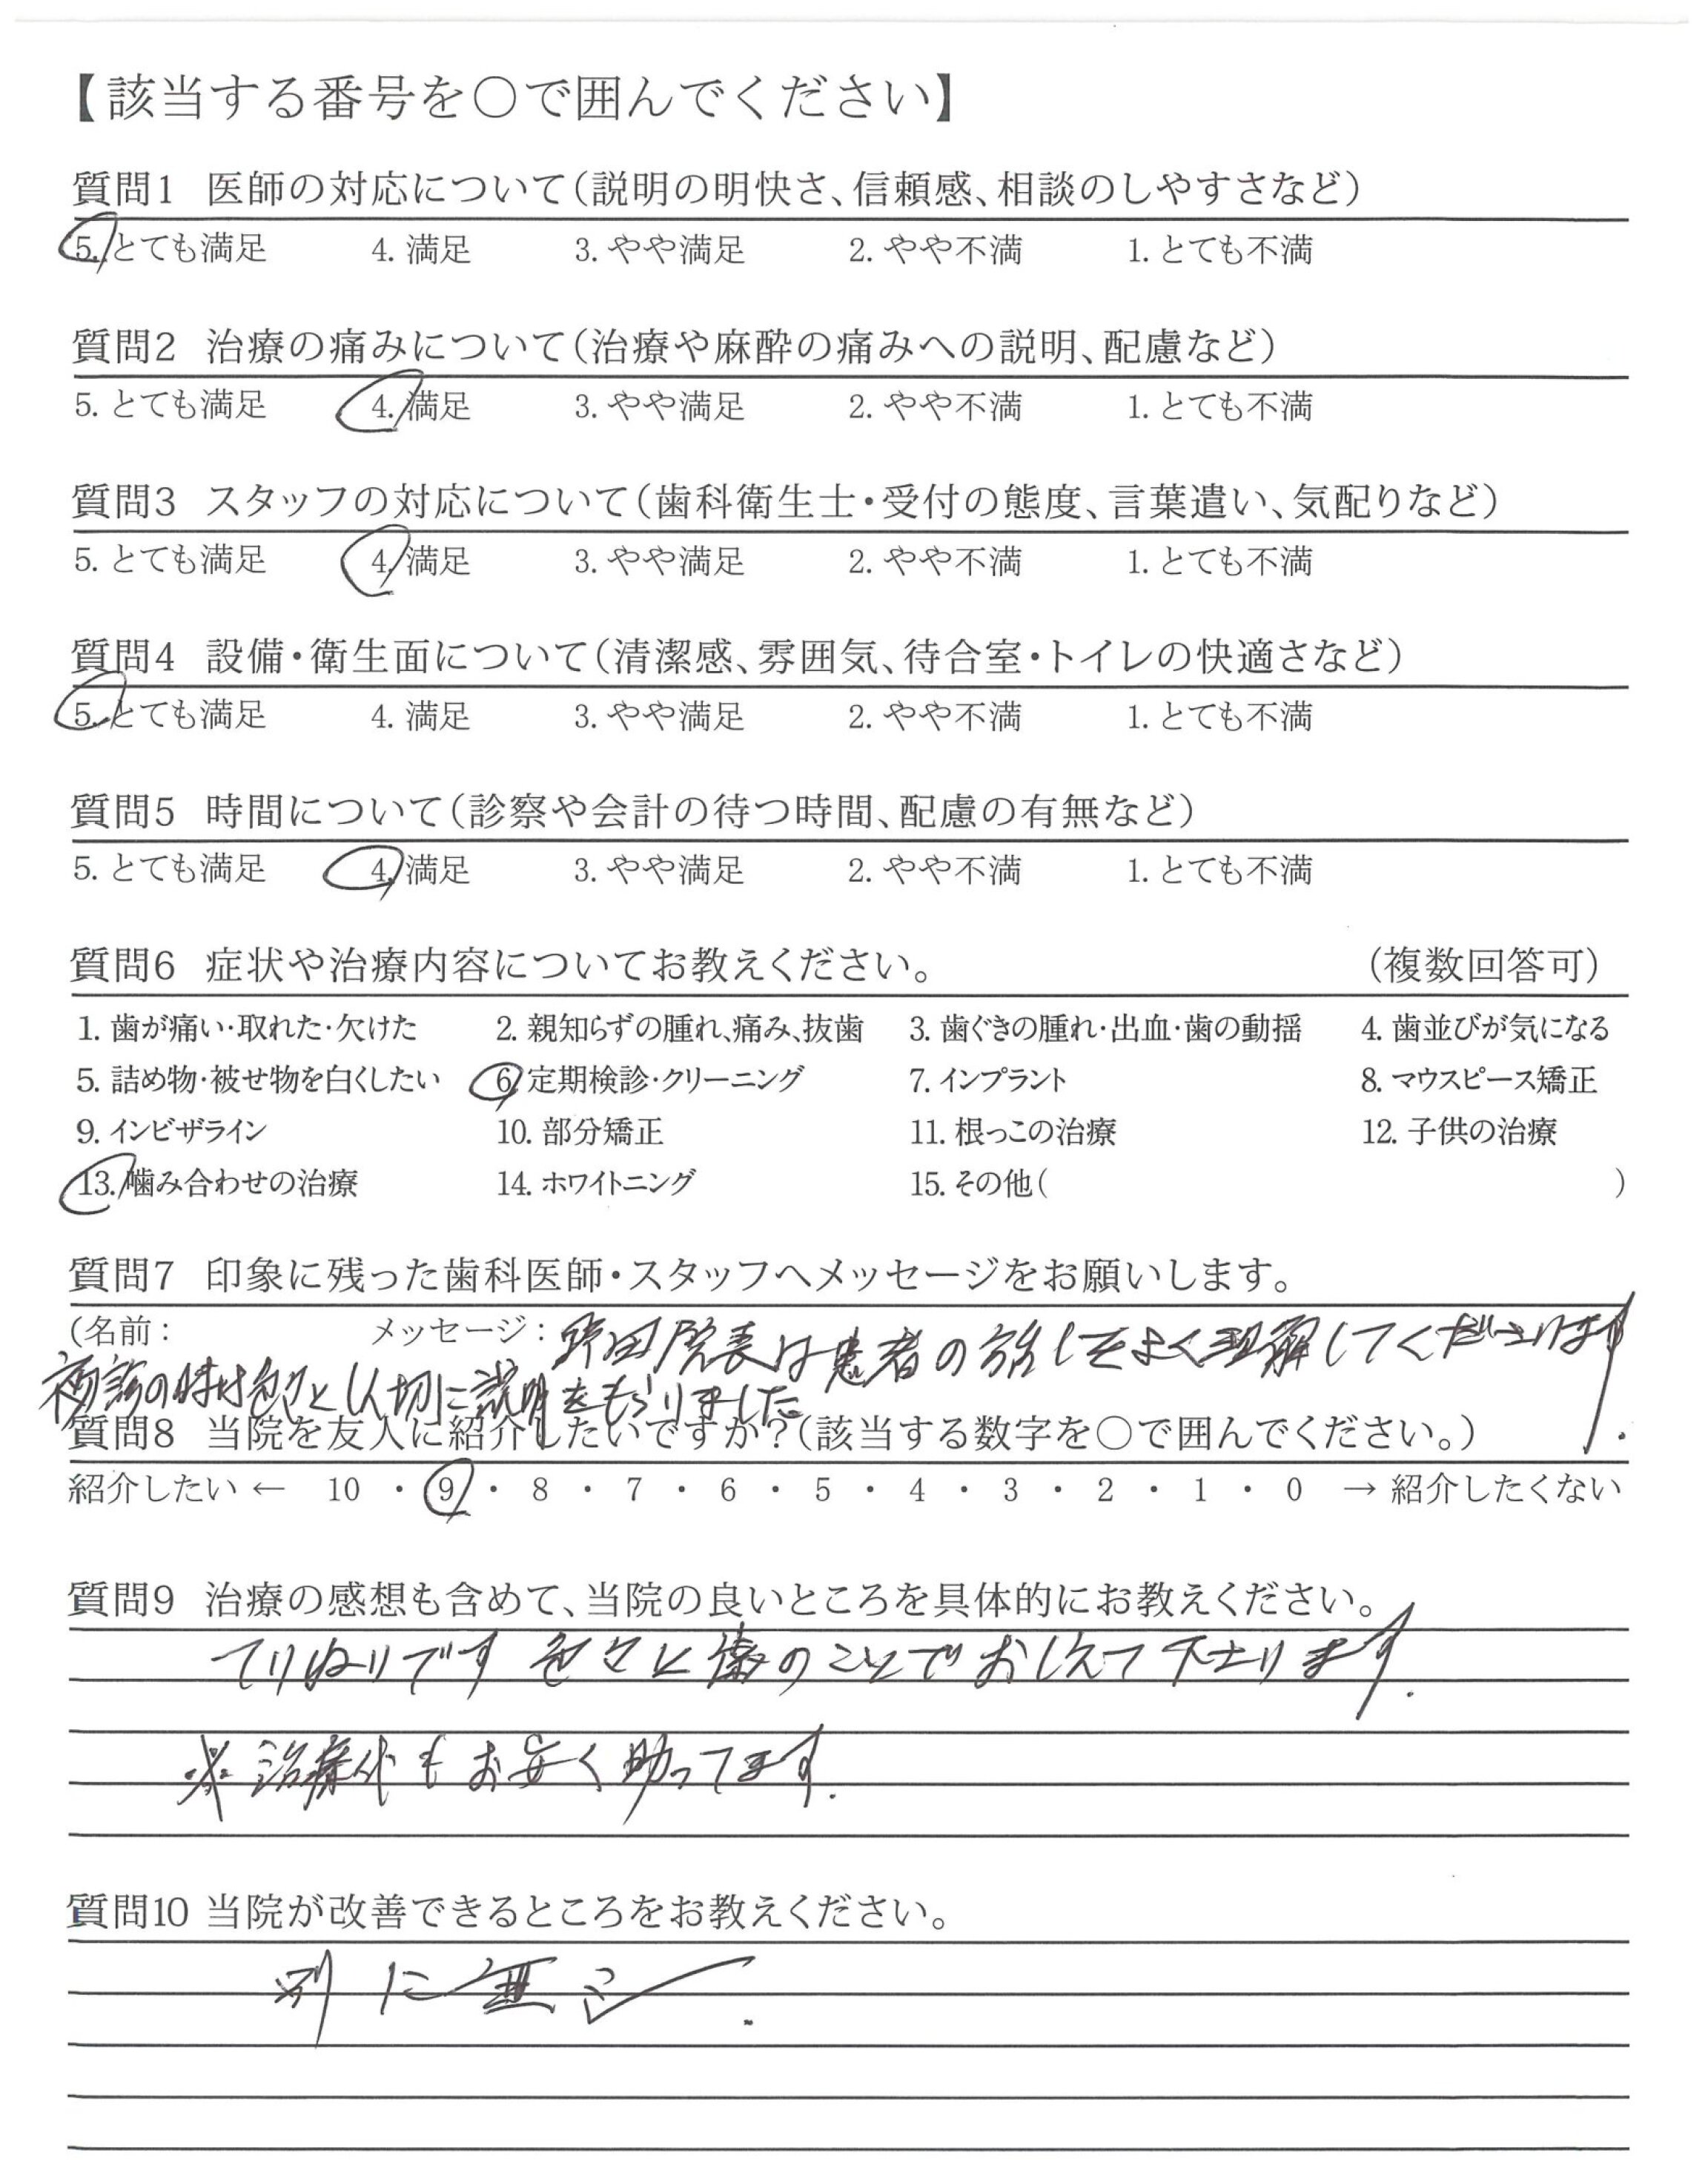 【該当する番号を○で囲んでください】
質問1 医師の対応について（説明の明快さ、信頼感、相談のしやすさなど）
5. とても満足 4. 満足 3. やや満足 2. やや不満 1. とても不満
質問2 治療の痛みについて（治療や麻酔の痛みへの説明、配慮など）
5. とても満足 4. 満足 3. やや満足 2. やや不満 1. とても不満
質問3 スタッフの対応について（歯科衛生士・受付の態度、言葉遣い、気配りなど）
5. とても満足 4. 満足 3. やや満足 2. やや不満 1. とても不満
質問4 設備・衛生面について（清潔感、雰囲気、待合室・トイレの快適さなど）
5. とても満足 4. 満足 3. やや満足 2. やや不満 1. とても不満
質問5 時間について（診察や会計の待つ時間、配慮の有無など）
5. とても満足 4. 満足 3. やや満足 2. やや不満 1. とても不満
質問6 症状や治療内容についてお教えください。 （複数回答可）
1. 歯が痛い・取れた・欠けた 2. 親知らずの腫れ、痛み、抜歯 3. 歯ぐきの腫れ・出血・歯の動揺 4. 歯並びが気になる
5. 詰め物・被せ物を白くしたい 6. 定期検診・クリーニング 7. インプラント 8. マウスピース矯正
9. インビザライン 10. 部分矯正 11. 根っこの治療 12. 子供の治療
13. 噛み合わせの治療 14. ホワイトニング 15. その他( )
質問7 印象に残った歯科医師・スタッフへメッセージをお願いします。
（名前： メッセージ： 野田院長は患者の話しをよく理解してくださいます.
初診の時は色々と 切に説明をもらいました
質問8 当院を友人に紹介したいですか？（該当する数字を○で囲んでください。）
紹介したい ← 10 ・ 9 ・ 8 ・ 7 ・ 6 ・ 5 ・ 4 ・ 3 ・ 2 ・ 1 ・ 0 → 紹介したくない
質問9 治療の感想も含めて、当院の良いところを具体的にお教えください。
ていねいです 色々と歯のことでおしえて下さります.
※治療代もお安く助ってます.
質問10 当院が改善できるところをお教えください。
別に無し.